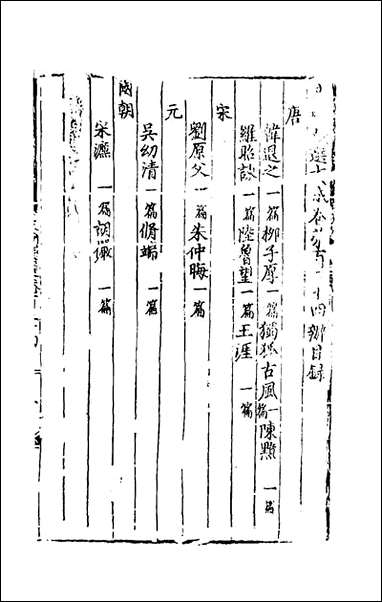 選 卷 百 十四 目録
唐
韓退之 一篇 柳子厚 一篇 獨孤古風 一篇 陳黯 一篇
羅昭諫 一篇 陸魯望 一篇 王涯 一篇
宋
劉原父 一篇 朱仲晦 一篇
元
吳幼清 一篇 一篇
國朝
宋濂 一篇 胡翰 一篇